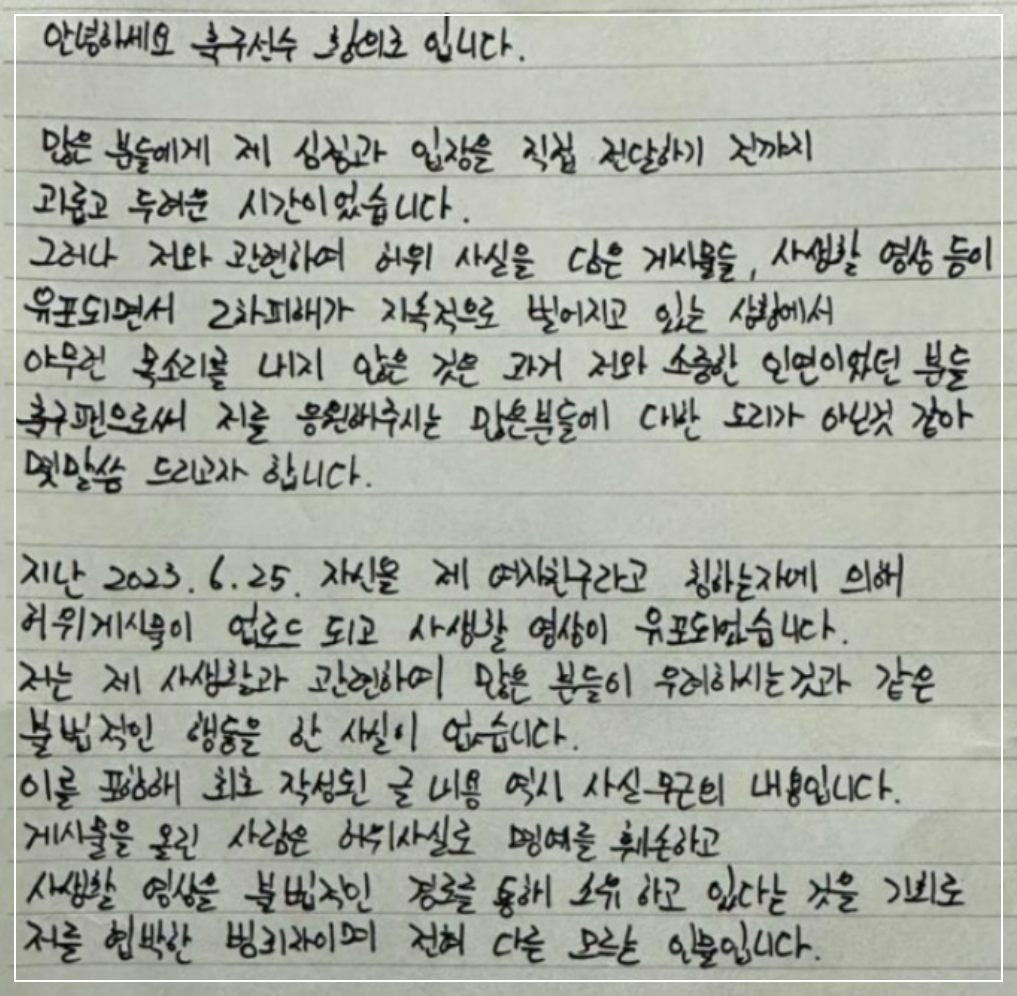 안녕하세요 축구선수 황의조 입니다.
많은 분들에게 제 심정과 입장을 직접 전달하기 전까지
괴롭고 두려운 시간이었습니다.
그러나 저와 관련하여 허위 사실을 담은 게시물들, 사생활 영상 등이
유포되면서 2차피해가 지속적으로 벌어지고 있는 상황에서
아무런 목소리를 내지 않은 것은 과거 저와 소중한 인연이었던 분들
축구팬으로써 저를 응원해주시는 많은분들에 대한 도리가 아닌것 같아
몇말씀 드리고자 합니다.
지난 2023.6.25. 자신을 제 여자친구라고 칭하는자에 의해
허위게시물이 업로드 되고 사생활 영상이 유포되었습니다.
저는 제 사생활과 관련하여 많은 분들이 우려하시는것과 같은
불법적인 행동을 한 사실이 없습니다.
이를 포함해 최초 작성된 글 내용 역시 사실무근의 내용입니다.
게시물을 올린 사람은 허위사실로 명예를 훼손하고
사생활 영상을 불법적인 경로를 통해 소유 하고 있다는 것을 기회로
저를 협박한 범죄자이며 전혀 다른 모르는 인물입니다.